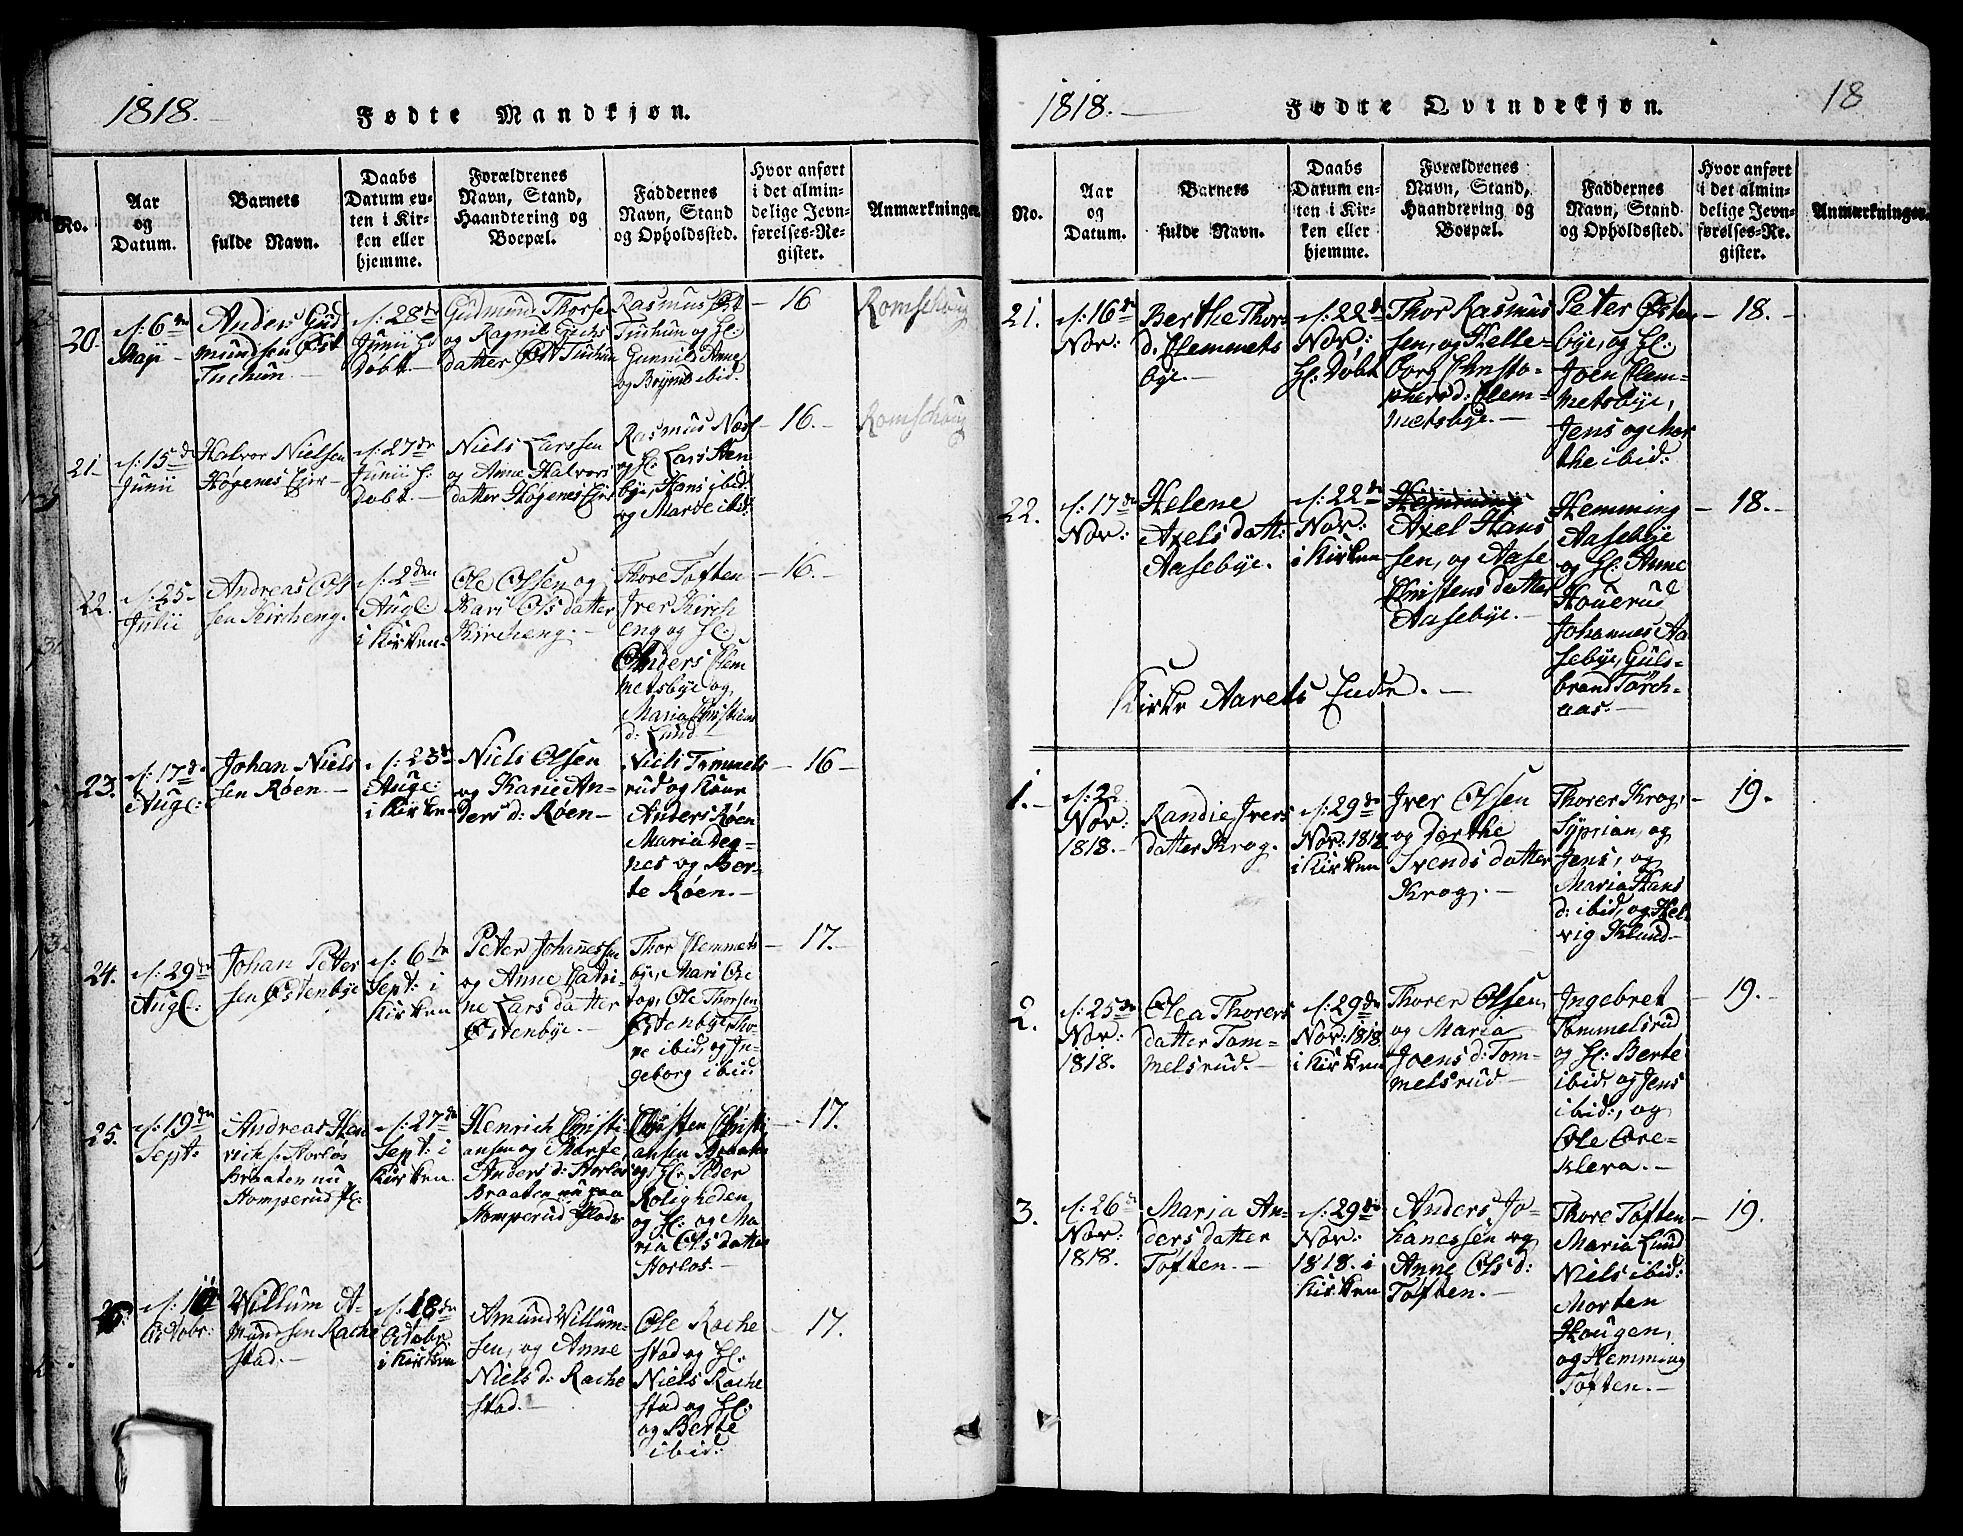 1818.
Fødte Mandkjøn.
No.
Aar
og
Datum.
Barnets
fulde Navn.
Daabs
Datum en-
ten i Kir-
ken eller
hjemme.
Forældrenes
Navn, Stand,
Haandtering og
Boepæl.
Faddernes
Navn, Stand
og Opholdssted.
Hvor anført
i det almin-
delige Jevn-
førelses-Re-
gister.
Anmærkninger.
20.
d: 6te
Maji
Anders Gud
mundsen Øst
Tuchun
d: 28de
Junii H:
Døbt.
Gudmund Thorse
og Ragnil
datter Øst Tuchun
Rasmus Øst
Tuchun og H:
Gunnild Anne
og Brynild ibid.
16
Romschoug
21.
d: 15de
Junii
Halvor Nielsen
Høgenes Ejer
d: 27de
Junii H:
Døbt.
Niels Larssen
og Anne Halvors
datter Høgenes Ejer
Rasmus
og H: Lars Sten
bye, Hans ibid:
og Marthe ibid:
16.
Romschoug
22.
d: 25
Julii
Andreas Ols
sen Kircheng.
d: 2den
Augt:
i Kirken.
Ole Olssen og
Kari Olsdatter
Kircheng.
Thore Toften
Iver Kirch
eng og H:
Anders Clem
metsbye og
Maria Christians
d: Lund
16.
23.
d: 17de
Augt:
Johan Niels
sen Røen.
d: 23de
Augt:
i Kirken
Niels Olssen
og Karie An-
ders d: Røen
Niels Tommels
rud og Kone
Anders Røen
Maria Deg-
nes og Ber-
te Røen.
16
24.
d: 29de
Augt:
Johan Peter
sen Østenbye
d: 6te
Sept: i
Kirken
Peter Johannessen
og Anne Catri-
ne Larsdatter
Østenbye.
Thor Clemmets
bye, Mari Ole
top, Ole Thorsen
Østenbye Tho-
re ibid, og In-
geborg ibid
17.
25.
d: 19de
Sept:
Andreas Hen
rich s: Storlos
Braaten nu
Homperud Pl:
d: 27de
Sept: i
Kirken.
Henrich Christi
ansen og Marte
Anders d: Storlos
Braaten nu paa
Homperud Plads
Christen Christi
ansen Braaten
og H: Peder
Roligheden
og H: og Ma
ria Olsdatter
Storlos.
17.
d: 10
Octobr:
Willum A-
mundsen Rache
stad.
d: 18de
Octobr
i Kirken
Amund Willum-
sen, og Anne
Niels d: Rache
stad.
Ole Rache
stad og H:
Niels Rache
stad og H:
og Berte
ibid:
17.
1818.
Fødte Qvindekjøn.
18
No.
Aar
og
Datum.
Barnets
fulde Navn.
Daabs
Datum en-
ten i Kir-
ken eller
hjemme.
Forældrenes
Navn, Stand,
Haandtering og
Boepæl.
Faddernes
Navn, Stand
og Opholdssted.
Hvor anført
i det almin-
delige Jevn-
førelses-Re-
gister.
Anmærkninger.
21.
d: 16de
Nov:
Berthe Thors
d: Clemmets
bye.
d: 22de
Nov:
H: Døbt
Thor Rasmus
sen, og Helle-
borg Christo-
phersd: Clem-
metsbye.
Peter Østen
bye, og H:
Joen Clem-
metsbye,
Jens og Mar
the ibid:
18.
22.
d: 17de
Nov:
Helene
Axelsdatt:
Aasebye.
d: 22de
Nov:
i Kirken
Hemming
Axel Hans
sen, og Aase
Christensdatter
Aasebye.
Hemming
Aasebye
og H: Anne
Houerud
Johannes Aa
sebye, Guls-
brand Tørch-
aas.
18.
Kirke Aarets Ende.
1.
d: 22
Nov:
1818.
Randie Ivers
datter Krog.
d: 29de
Nov: 1818
i Kirken
Iver Olssen
og Dorthe
Svends datter
Krog.
Thorer Krog,
Syprian, og
Jens, og
Maria Hans
d: ibid, og Hel
vig Klund
19.
2.
d: 25de
Nov:
1818.
Olea Thorers
datter Tom-
melsrud.
d: 29de
Nov: 1818
i Kirken
Thorer Olssen,
og Maria
Joens d: Tom-
melsrud
Ingebret
Tommelsrud
og H: Berte
ibid, og Jens
ibid:, og
Ole Ore-
klera.
19.
3.
d: 26de
Nov:
1818.
Maria An-
dersdatter
Toften.
d: 29de
Nov:
1818. i
Kirken
Anders Jo-
hanessen og
Anne Olsd:
Toften.
Thore Toften
Maria Lund
Niels ibid:
Morten
Hougen,
og Hemming
Toften.
19.